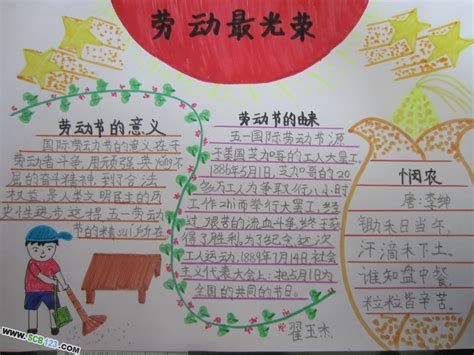 劳动最光荣
劳动节的意义
国际劳动节的意义在于
劳动者斗争，用顽强、英yǒng不
屈的奋斗精神，到了合法
权节，是人类文明民主的历
史性进步，这五一劳动
节的精suǐ所在
劳动节的由来
五一国际劳动节源
于美国芝加哥的工人大罢工，
1886年5月1日，芝加哥的20
多万工人为争取行八小时
工作zhì而举行大罢工，经
过艰苦的流血斗争，终于获
得了胜利。为了纪念这次
工人运动，1889年7月14日社会
主义代表大会上：把5月1日为
全国的共同的节日。
悯农
唐：李绅
锄禾日当午，
汗滴禾下土。
谁知盘中餐，
粒粒皆辛苦。
翟玉杰
www.SCB123.com